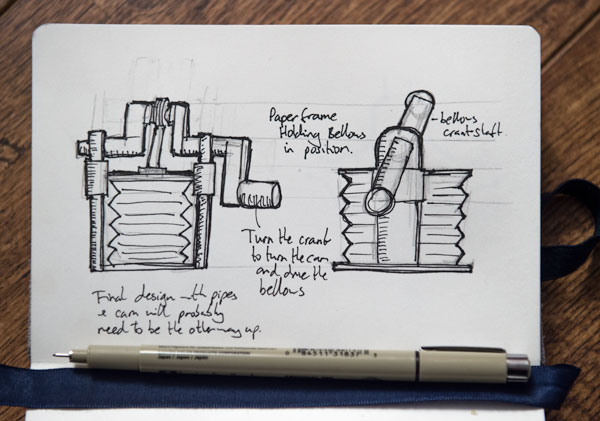 Paper frame
Holding Bellows
in position.
- bellows
crankshaft.
Turn the crank
to turn the cam
and drive the
bellows
Final design with pipes
& cam will probably
need to be the other way up.
Japan / Japon / Japan